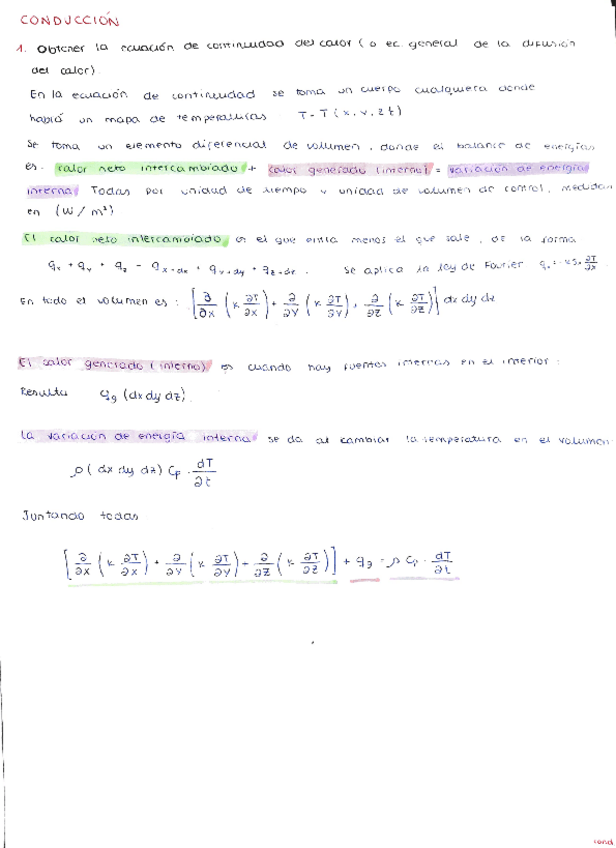 CONDUCCIÓN
1. Obtener la ecuación de continuidad del calor (o ec. general de la difusión
del calor).
En la ecuación de continuidad se toma un cuerpo cualquiera donde
habrá un mapa de temperaturas T = T (x, y, z t)
Se toma un elemento diferencial de volumen, donde el balance de energías
es: calor neto intercambiado + calor generado (interno) = variación de energía
interna Todas por unidad de tiempo y unidad de volumen de control, medidas
en (W/m³)
El calor neto intercambiado es el que entra menos el que sale, de la forma
qx + qy + qz - qx+dx + qy+dy + qz+dz. Se aplica la ley de Fourier
En todo el volumen es: [∂/∂x (k ∂T/∂x) + ∂/∂y (k ∂T/∂y) + ∂/∂z (k ∂T/∂z)] dx dy dz
El calor generado (interno) es cuando hay fuentes internas en el interior:
Resulta qg (dx dy dz).
La variación de energía interna se da al cambiar la temperatura en el volumen
ρ (dx dy dz) Cp · dT/∂t
Juntando todas
[∂/∂x (k ∂T/∂x) + ∂/∂y (k ∂T/∂y) + ∂/∂z (k ∂T/∂z)] + qg = ρ Cp · dT/∂t